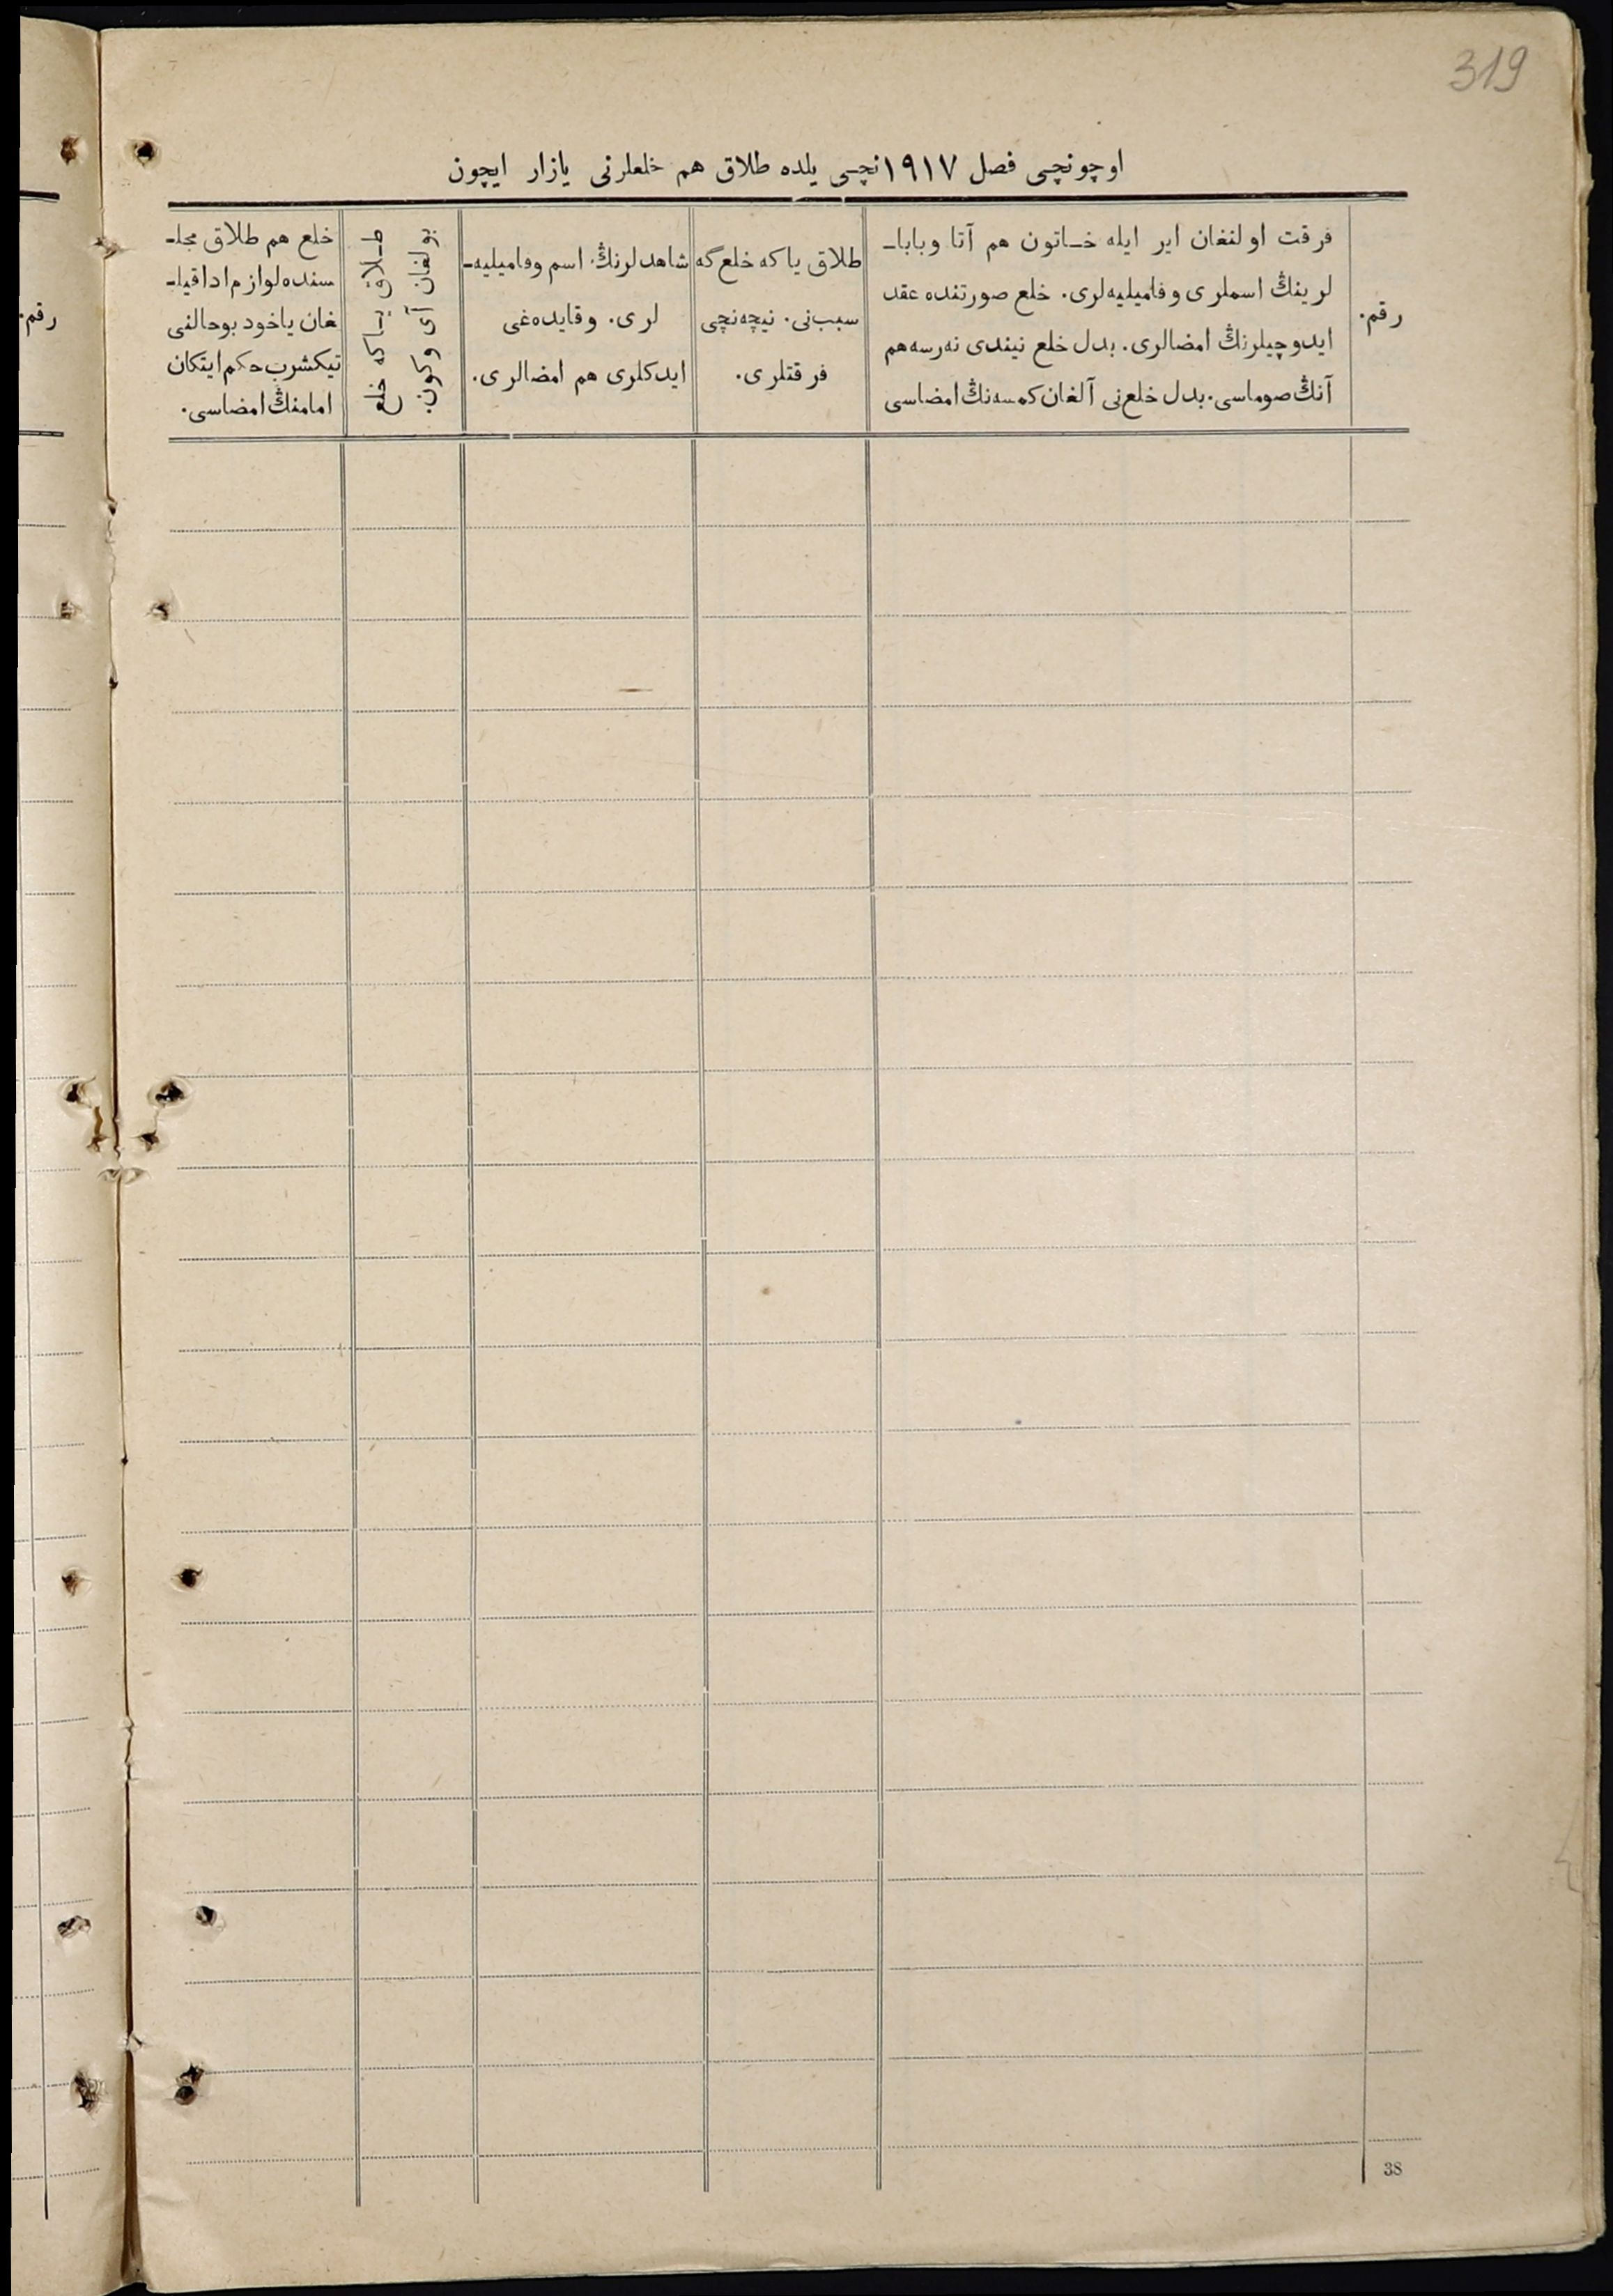 319
اوچونچی فصل ١٩١٧نچی يلده طلاق هم خلعلرنی يازار ايچون
رقم.
فرقت اولنغان اير ايله خـاتون هم آتا وباباـ
لرينڭ اسملری وفاميليه‌لری. خلع صورتنده عقد
ايدوچيلرنڭ امضالری. بدل خلع نيندی نه‌رسه هم
آنڭ صوماسی. بدل خلع‌نی آلغان كمسه‌نڭ امضاسی
طلاق ياكه خلع‌گه
سبب‌نی. نيچه‌نچی
فرقتلری.
شاهدلرنڭ اسم وفاميليه‌ـ
لری. وقايده‌غی
ايدكلری هم امضالری.
طـلاق يـاكه خلع
بولغان آی وكون.
خلع هم طلاق مجلـ
سنده لوازم ادا قيلـ
غان ياخود بوحالنی
تيكشرب حكم ايتكان
امامنڭ امضاسی.
رقم.
38